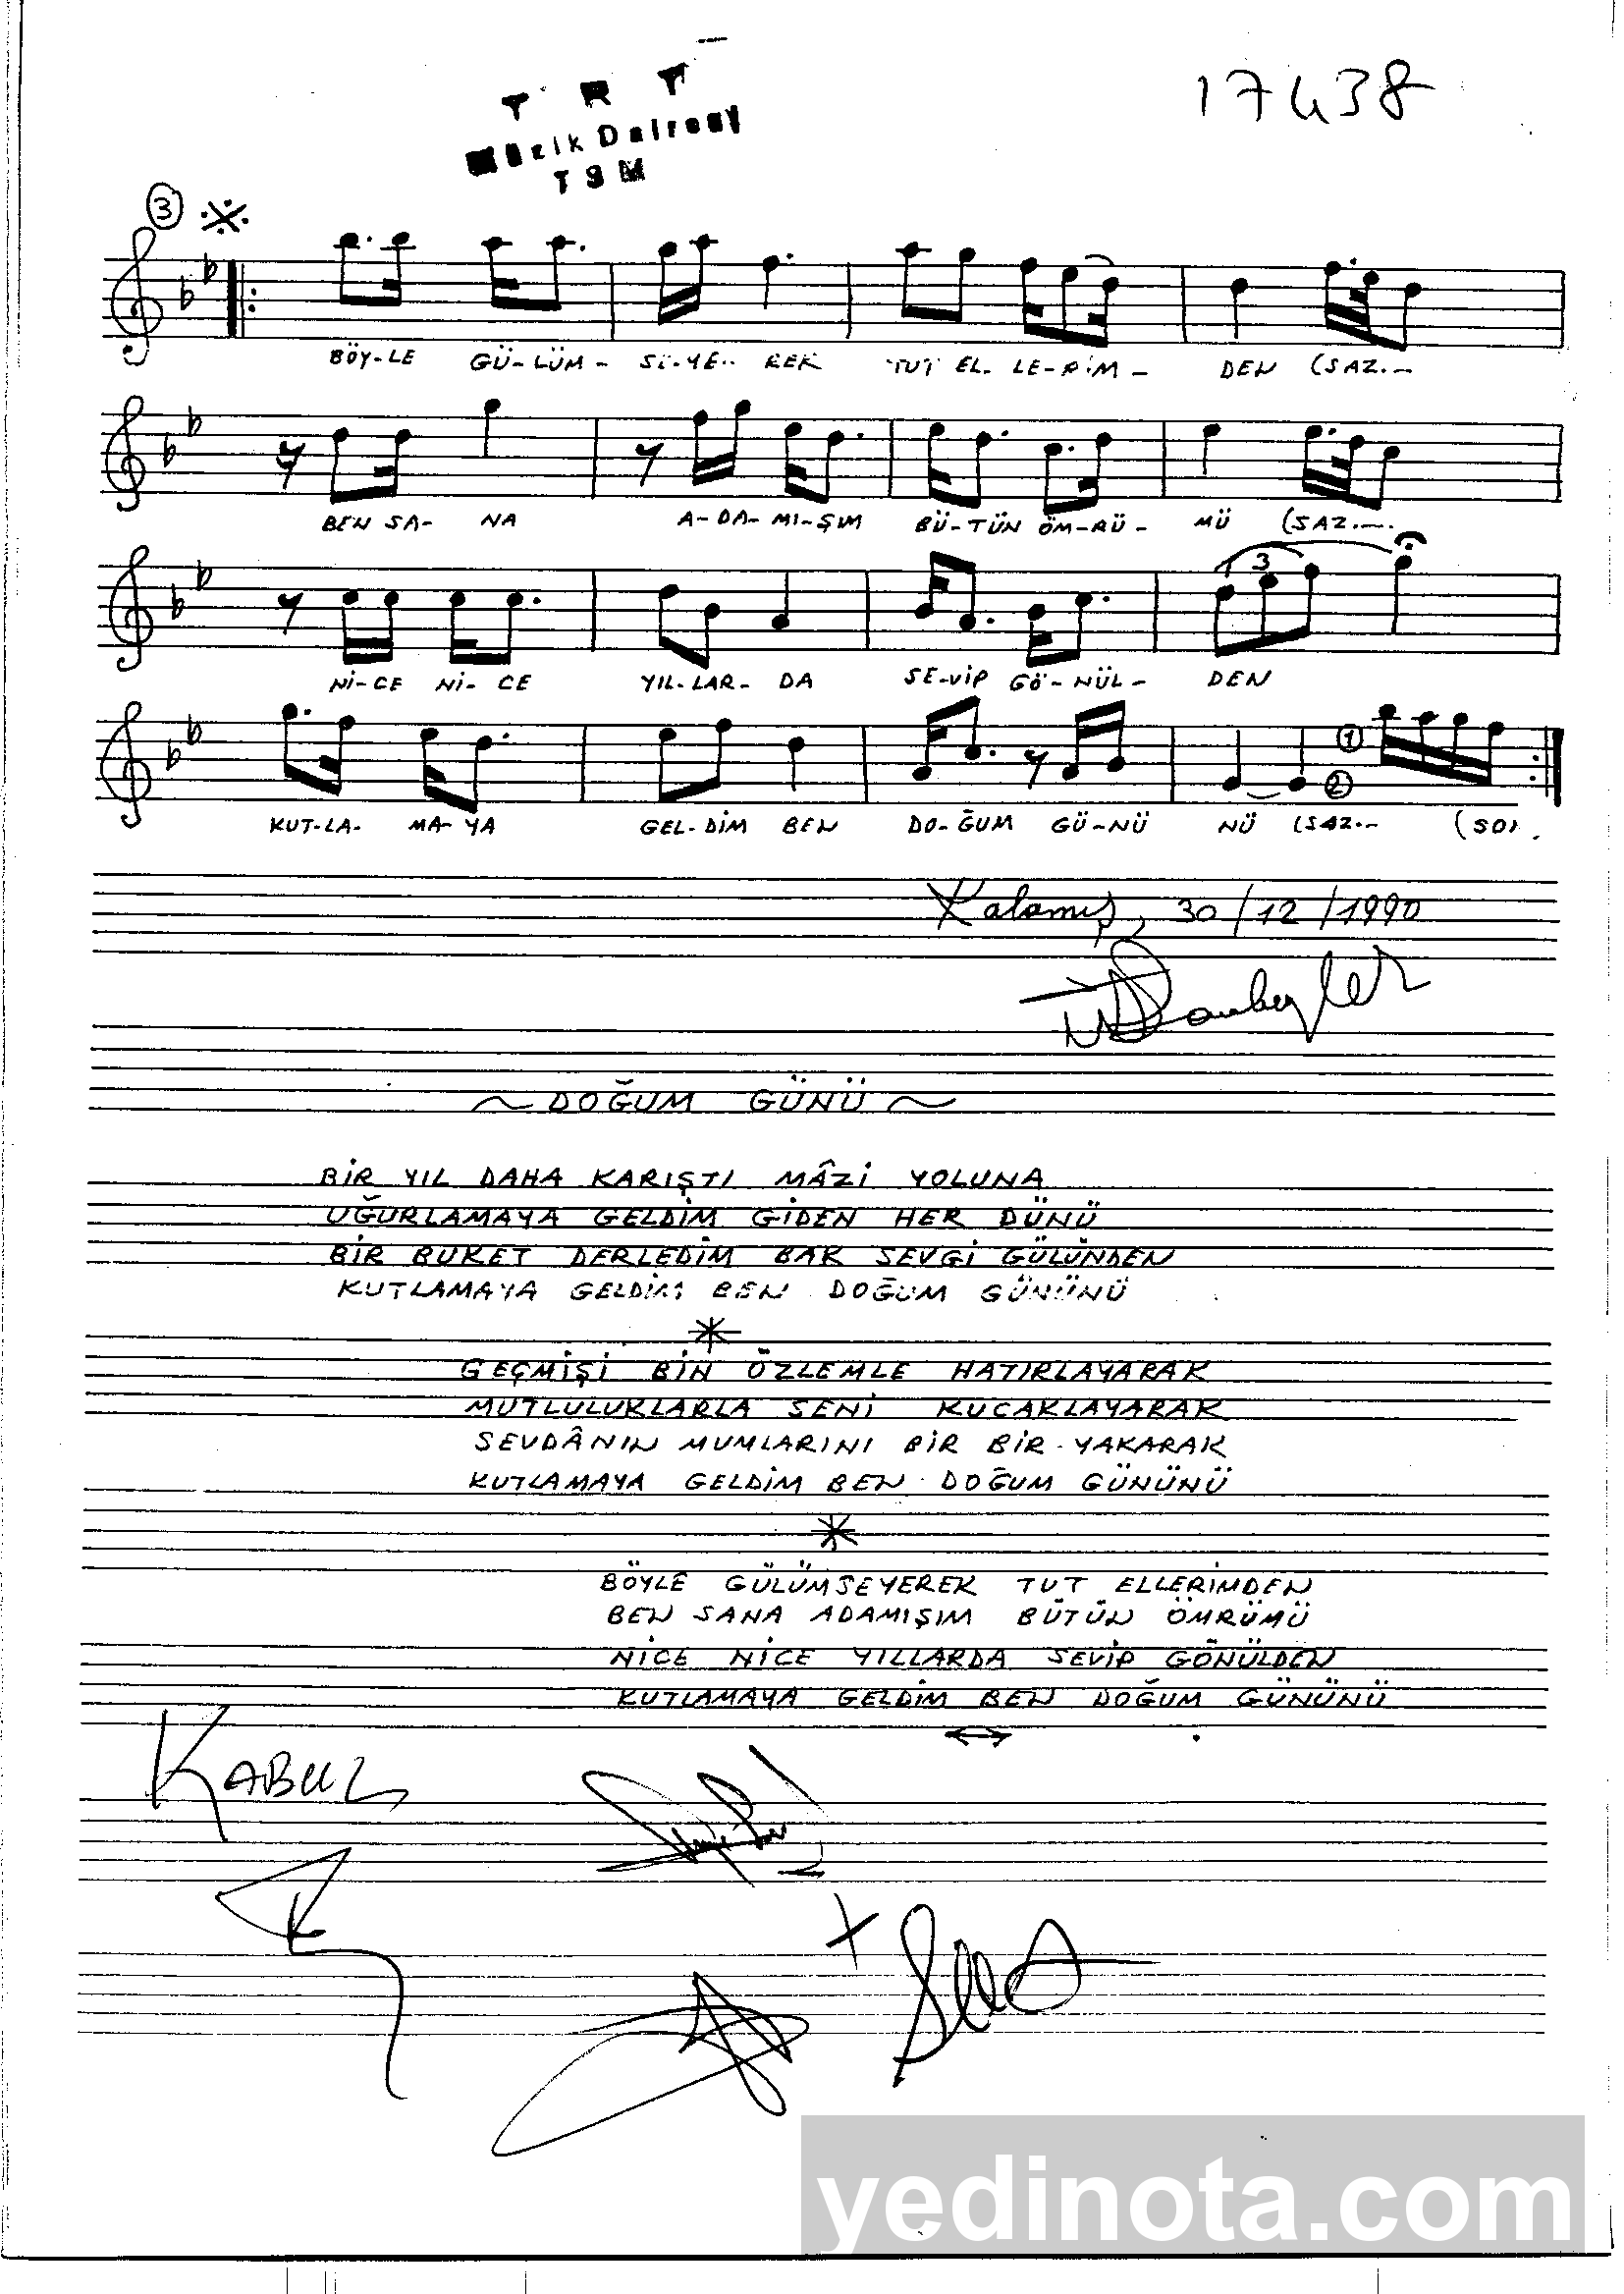 17438
T R T
Müzik Dairesi
TSM
3
BÖY-LE GÜ-LÜM- SE-YE-REK TUT EL-LE-RİM- DEN (SAZ.-
BEN SA- NA A-DA-MI-ŞIM BÜ-TÜN ÖM-RÜ- MÜ (SAZ.-.
3
Nİ-CE Nİ-CE YIL-LAR-DA SE-VİP GÖ-NÜL- DEN
1
2
KUT-LA- MA-YA GEL-DİM BEN DO-ĞUM GÜ-NÜ NÜ (SAZ.- (SON.
Kalamış, 30/12/1990
~ DOĞUM GÜNÜ ~
BİR YIL DAHA KARIŞTI MÂZİ YOLUNA
UĞURLAMAYA GELDİM GİDEN HER DÜNÜ
BİR BUKET DERLEDİM BAK SEVGİ GÜLÜNDEN
KUTLAMAYA GELDİM BEN DOĞUM GÜNÜNÜ
GEÇMİŞİ BİN ÖZLEMLE HATIRLAYARAK
MUTLULUKLARLA SENİ KUCAKLAYARAK
SEVDÂNIN MUMLARINI BİR BİR YAKARAK
KUTLAMAYA GELDİM BEN DOĞUM GÜNÜNÜ
BÖYLE GÜLÜMSEYEREK TUT ELLERİMDEN
BEN SANA ADAMIŞIM BÜTÜN ÖMRÜMÜ
NİCE NİCE YILLARDA SEVİP GÖNÜLDEN
KUTLAMAYA GELDİM BEN DOĞUM GÜNÜNÜ
KABUL
yedinota.com